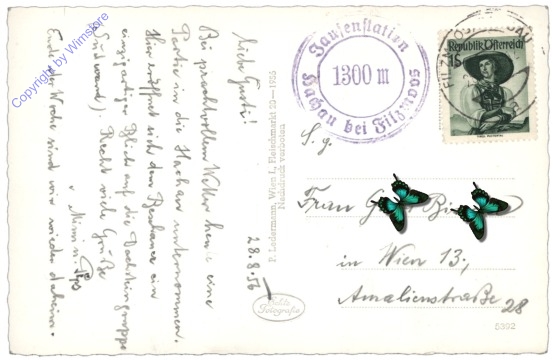 Liebe Gusti!
Bei prachtvollem Wetter heute eine
Partie in die Hachau unternommen.
Hier eröffnet sich dem Beschauer ein
einzigartiger Blick auf die Dachsteingruppe
(Südwand). Recht viele Grüße
Mimi u.
Ende der Woche sind wir wieder daheim.
28.8.56
Copyright by Wimstore
P. Ledermann, Wien I., Fleischmarkt 20 – 1955
Nachdruck verboten
Echte
Fotografie
Jausenstation
1300 m
Hachau bei Filzmoos
Republik Österreich
1S
FILZMOOS
S. g.
Frau
in Wien 13.,
Amalienstraße 28
5392